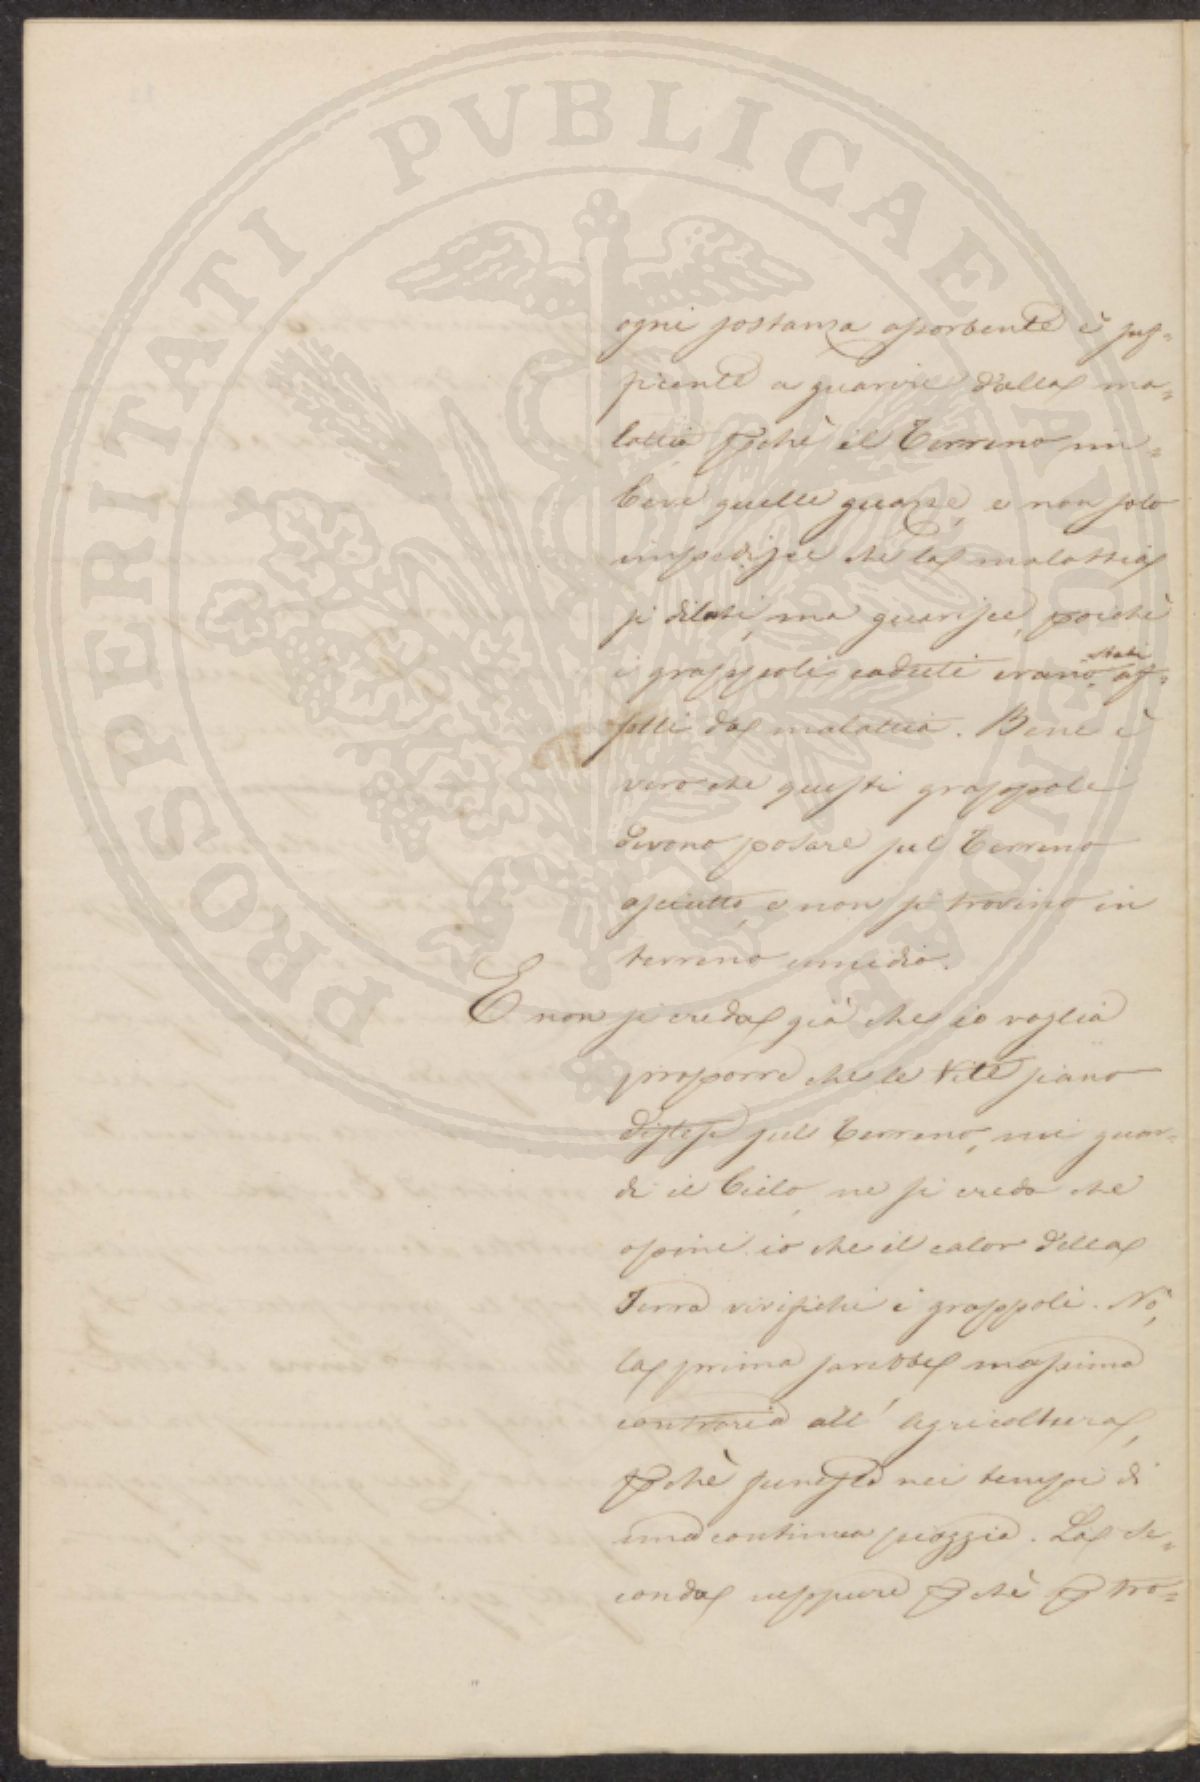 PROSPERITATI PVBLICAE AVGENDAE
ogni sostanza assorbente è suf=
ficente a guarire dalla ma=
lattia pchè il Terreno im=
beve quelle guazze, e non solo
impedisce che la malattia
si dilati, ma guarisce, poichè
stati
i grappoli caduti erano af=
fetti da malattia. Bene è
vero che questi grappoli
devono posare sul Terreno
asciutto, e non si trovino in
terreno umido.
E non si creda già che io voglia
proporre che le Vite siano
distese sul Terreno, mi guar=
di il Cielo, ne si creda che
opini io che il calor della
Terra vivifichi i grappoli. Nò,
la prima sarebbe massima
contraria all' Agricoltura,
pchè funesta nei tempi di
una continua pioggia. La Se=
conda neppure pchè p tro=